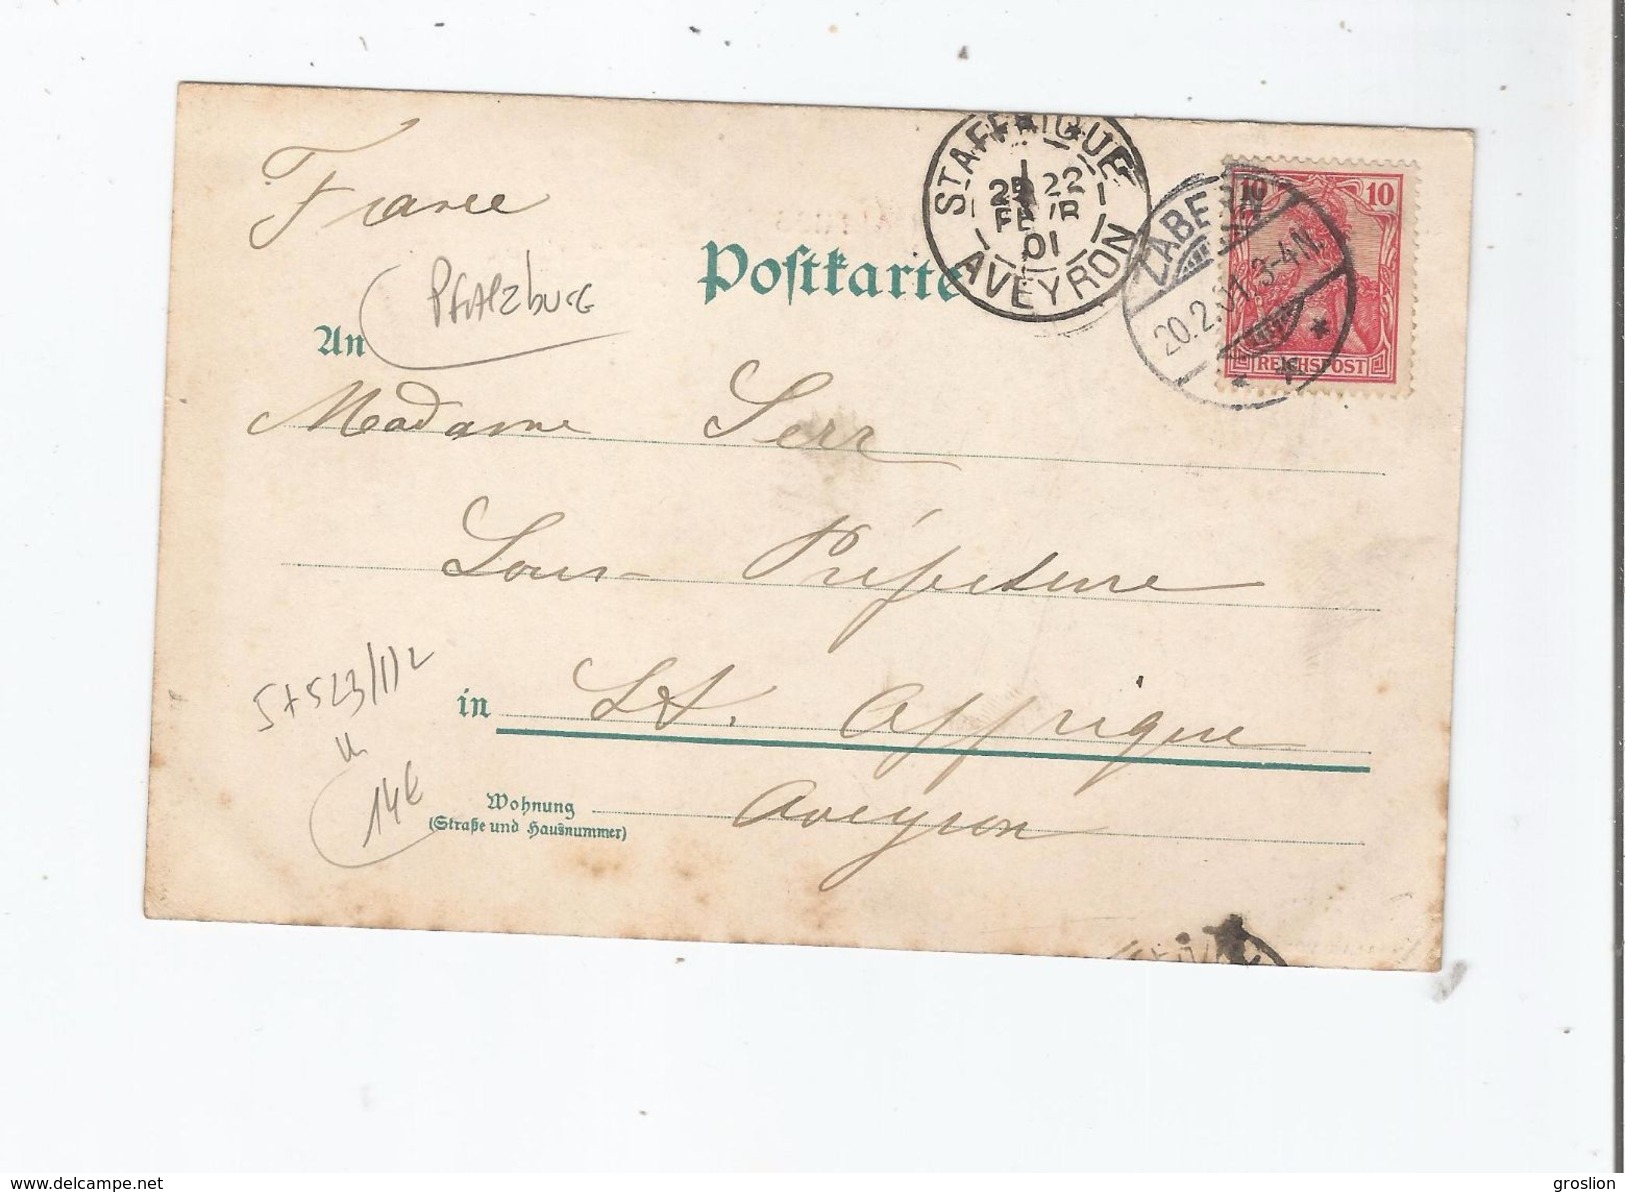 France
ST AFFRIQUE
22
FEVR
01
AVEYRON
ZABERN
20.2.01. 3-4N.
10 10
REICHSPOST
Postkarte
Pfalzburg
An
Madame Serr
Sous-Préfecture
in St. Affrique
Wohnung
(Straße und Hausnummer)
Aveyron
14€
www.delcampe.net
groslion